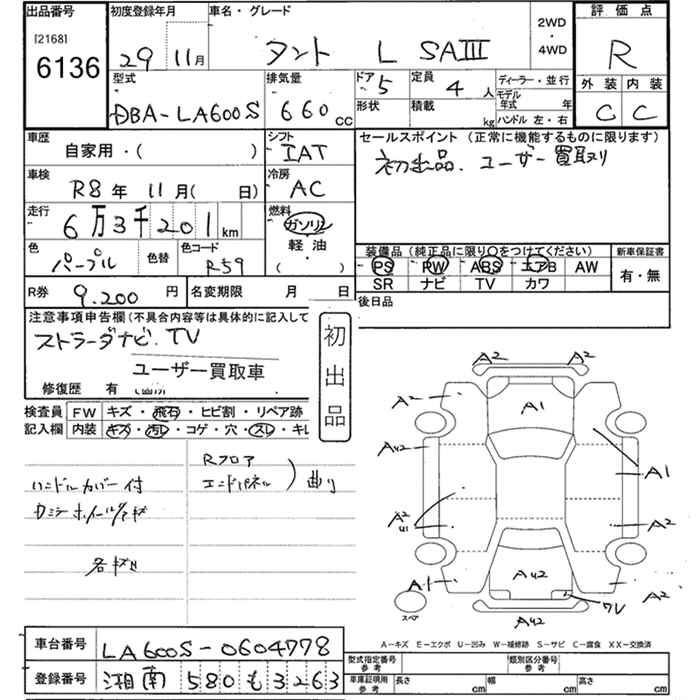 出品番号
[2168]
6136
初度登録年月
29 11月
車名・グレード
タント L SAⅢ
2WD
・
4WD
評価点
R
外装 内装
C C
型式
DBA-LA600S
排気量
660 cc
ドア
5
定員
4 人
形状
積載
kg
ディーラー・並行
モデル
年式 年
ハンドル 左・右
車歴
自家用・( )
シフト
IAT
車検
R8年 11月( 日)
冷房
AC
走行
6万3千201km
燃料
ガソリン
軽油
( )
色
パープル
色替
色コード
R59
R券
9.200円
名変期限 月 日
セールスポイント (正常に機能するものに限ります)
初出品、ユーザー買取り
装備品(純正品に限り○をつけてください)
PS PW ABS エアB AW
SR ナビ TV カワ
新車保証書
有・無
後日品
注意事項申告欄(不具合内容等は具体的に記入して
ストラーダナビ.TV
ユーザー買取車
修復歴 有
初出品
検査員
記入欄
FW キズ・飛石・ヒビ割・リペア跡
内装 キズ・汚レ・コゲ・穴・スレ・キレ
Rフロア
エンドパネル
曲り
ハンドルカバー付
各サビ
A2
A2
A2
A1
A42
A1
A2
U1
A2
A1
A42
A2
W
A42
スペア
A-キズ E-エクボ U-凹み W-補修跡 S-サビ C-腐食 XX-交換済
車台番号
LA600S-0604778
登録番号
湘南 580 も 3263
型式指定番号
参考
類別区分番号
参考
車庫証明用
参考
長さ cm
幅 cm
高さ cm